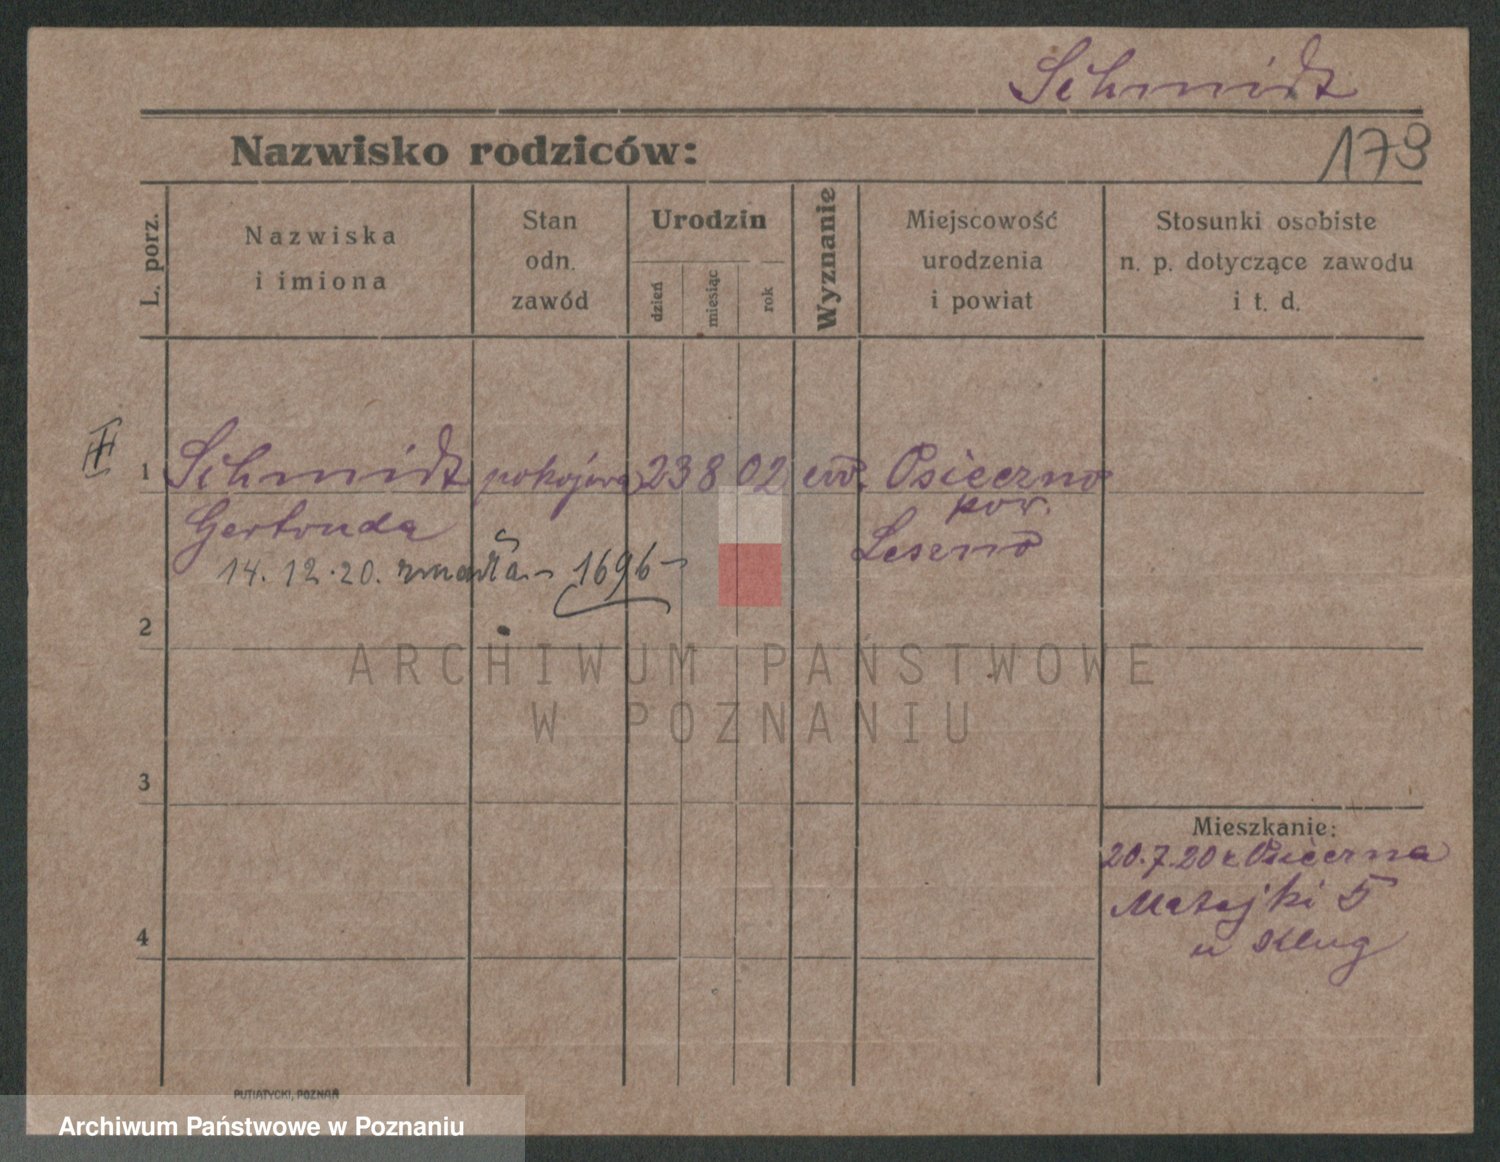 Schmidt
Nazwisko rodziców:
179
L. porz.
Nazwiska
i imiona
Stan
odn.
zawód
Urodzin
dzień
miesiąc
rok
Wyznanie
Miejscowość
urodzenia
i powiat
Stosunki osobiste
n. p. dotyczące zawodu
i t. d.
II
1 Schmidt pokojowa 23 8 02 ew. Osieczno
pow.
Gertruda Leszno
14. 12. 20. zmarła - 1696 -
2
ARCHIWUM PAŃSTWOWE
W POZNANIU
3
Mieszkanie:
20.7.20 z Osieczna
Matejki 5
4
u Klug
PUTIATYCKI, POZNAŃ
Archiwum Państwowe w Poznaniu